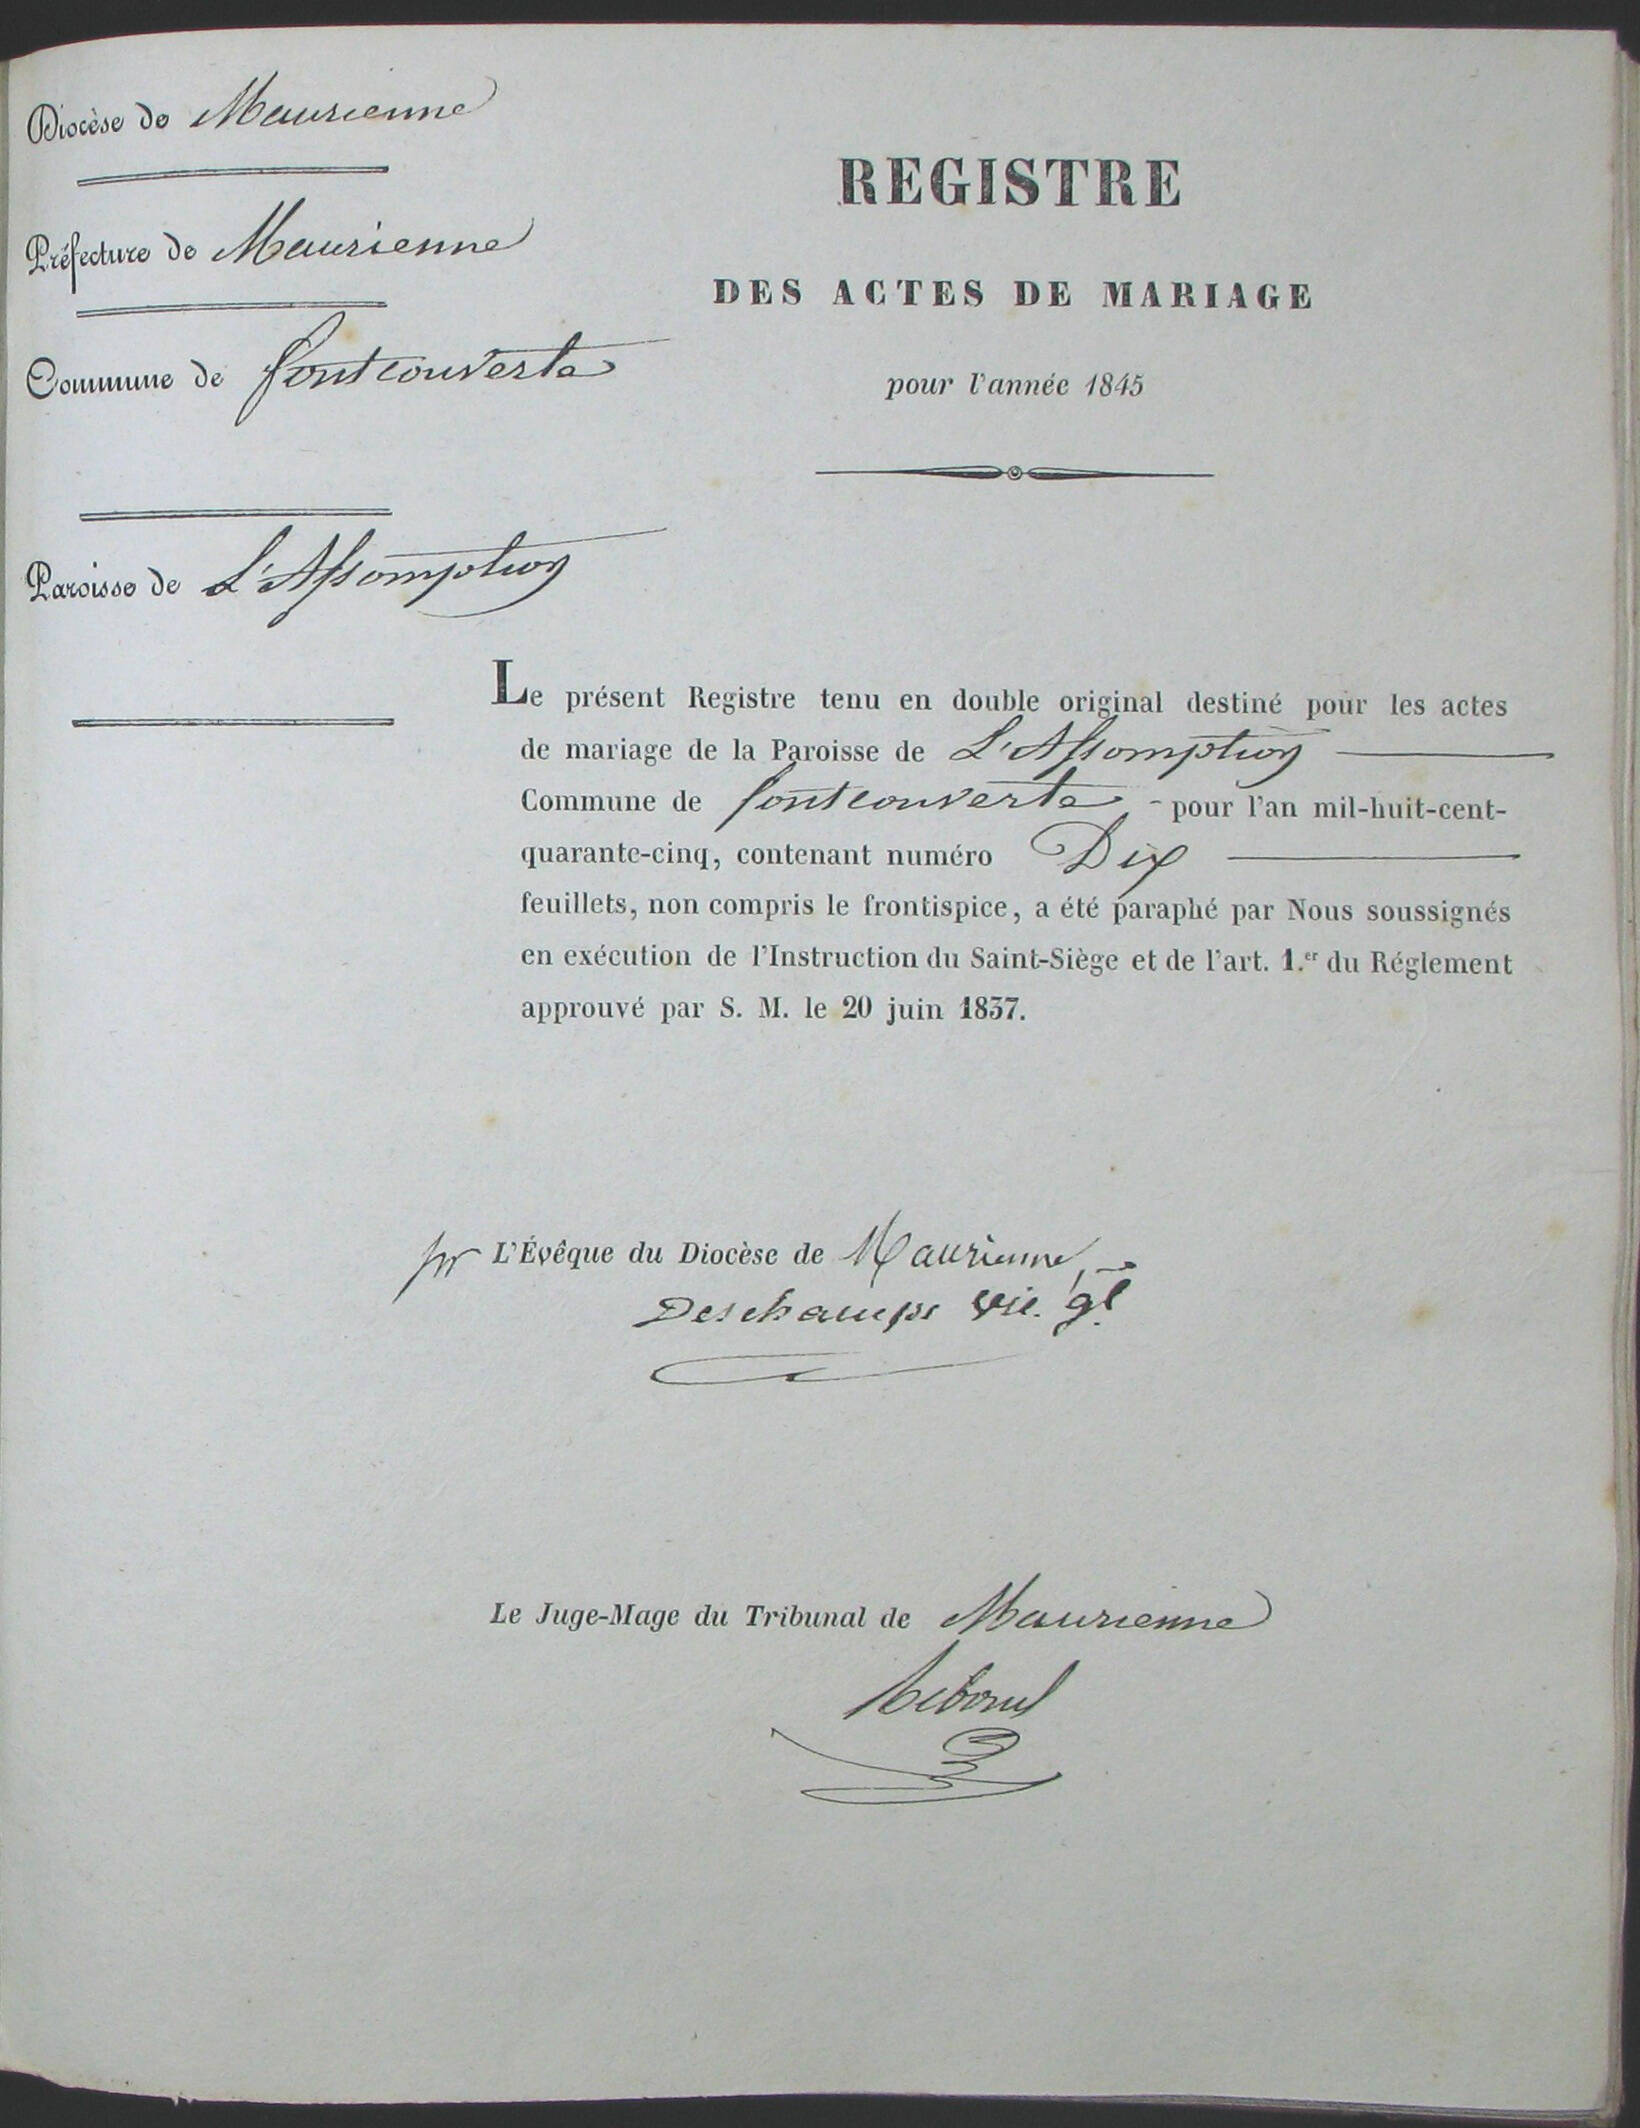 Diocèse de Maurienne
Préfecture de Maurienne
Commune de fontcouverte
Paroisse de L'Assomption
REGISTRE
DES ACTES DE MARIAGE
pour l'année 1845
Le présent Registre tenu en double original destiné pour les actes
de mariage de la Paroisse de L'Assomption
Commune de fontcouverte - pour l'an mil-huit-cent-
quarante-cinq, contenant numéro Dix
feuillets, non compris le frontispice, a été paraphé par Nous soussignés
en exécution de l'Instruction du Saint-Siège et de l'art. 1.er du Réglement
approuvé par S. M. le 20 juin 1837.
pr L'Évêque du Diocèse de Maurienne,
Deschamps vic. gl.
Le Juge-Mage du Tribunal de Maurienne